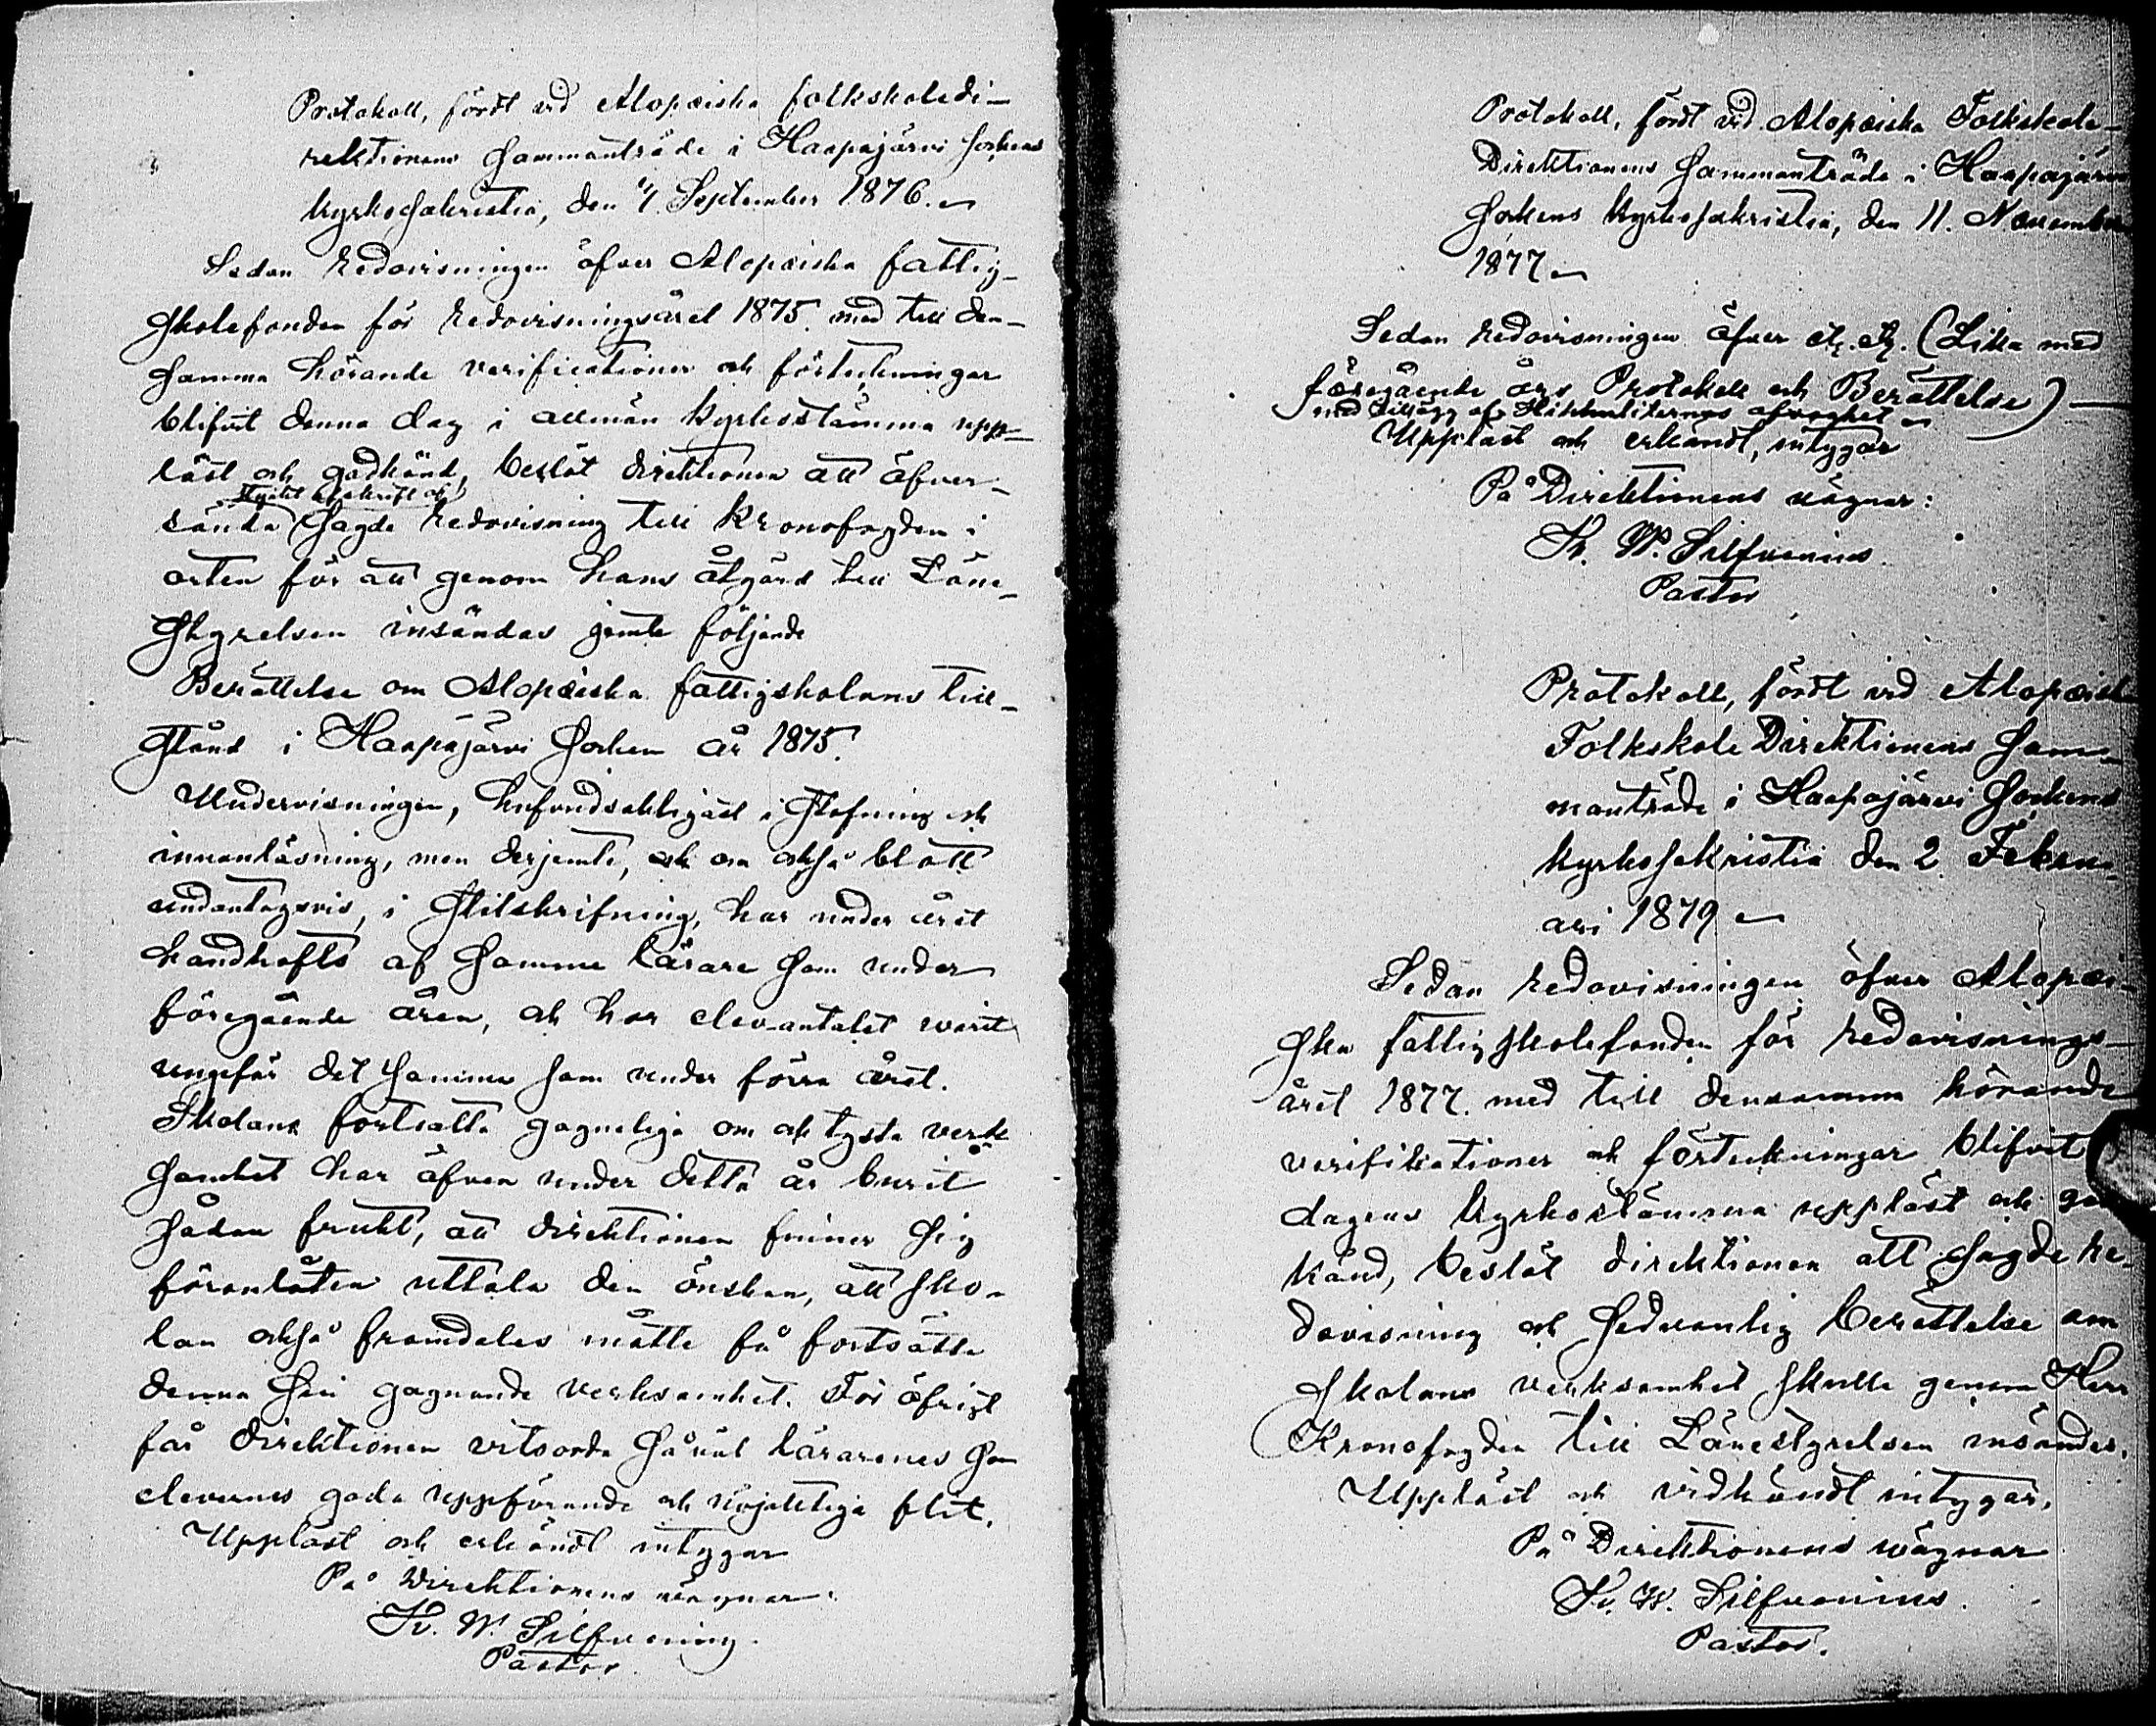 Protokoll, fördt vid Alopæiska folkskoledi-
rektionens sammanträde i Haapajärvi sockens
kyrkosakristia, den 4 September 1876.
Sedan redovisningen öfver Alopæiska fattig-
skolefonden för redovisningsåret 1875 med till den-
samma hörande verificationer och förteckningar
blifvit denna dag i allmän kyrkostämma upp-
läst och godkänd, beslöt direktionen att öfver-
afskrift af
sända sagde redovisning till Kronofogden i
orten för att genom hans åtgärd till Läne-
styrelsen insändas jemte följande
Berättelse om Alopæiska fattigskolans till-
stånd i Haapajärvi socken år 1875.
Undervisningen, hufvudsakligast i stafning och
innanläsning, men derjemte, och om också blott
undantagsvis, i stilskrifning, har under året
handhafts af samme lärare som under
föregående åren, och har elevantalet varit
ungefär det samma som under förra året.
Skolans fortsatta gagneliga om och tysta verk
samhet har äfven under detta år burit
sådan frukt, att direktionen finner sig
föranlåten uttala den önskan, att sko-
lan också framdeles måtte få fortsätta
denna sin gagnande verksamhet. För öfrigt
får direktionen vitsorda såväl lärarenes som
elevernes goda uppförande och flit.
Uppläst och erkändt intygar
På Direktionens vägnar:
K. W. Silfvenius.
Pastor.
Protokoll, fördt vid Alopæiska Folkskole-
Direktionens sammanträde i Haapajärvi
sockens kyrkosakristia, den 11. November
1877
Sedan redovisningen öfver etc. etc. (Lika med
föregående års Protokoll och Berättelse)
med tillägg af
Uppläst och erkändt, intygar
På Direktionens vägnar:
K. W. Silfvenius.
Pastor
Protokoll, fördt vid Alopæiska
Folkskole Direktionens sam-
manträde i Haapajärvi sockens
kyrkosakristia den 2 Febru-
ari 1879
Sedan redovisningen öfver Alopæi-
ska fattigskolefonden för redovisnings-
året 1877. med till densamma hörande
verifikationer och förteckningar blifvit
dagens kyrkostämma uppläst och god
känd, beslöt direktionen att sagde re-
dovisning och sedvanlig berättelse om
skolans verksamhet skulle genom Herr
Kronofogden till Länestyrelsen insändas.
Uppläst och vidkändt intygar,
På Direktionens vägnar
K. W. Silfvenius.
Pastor.